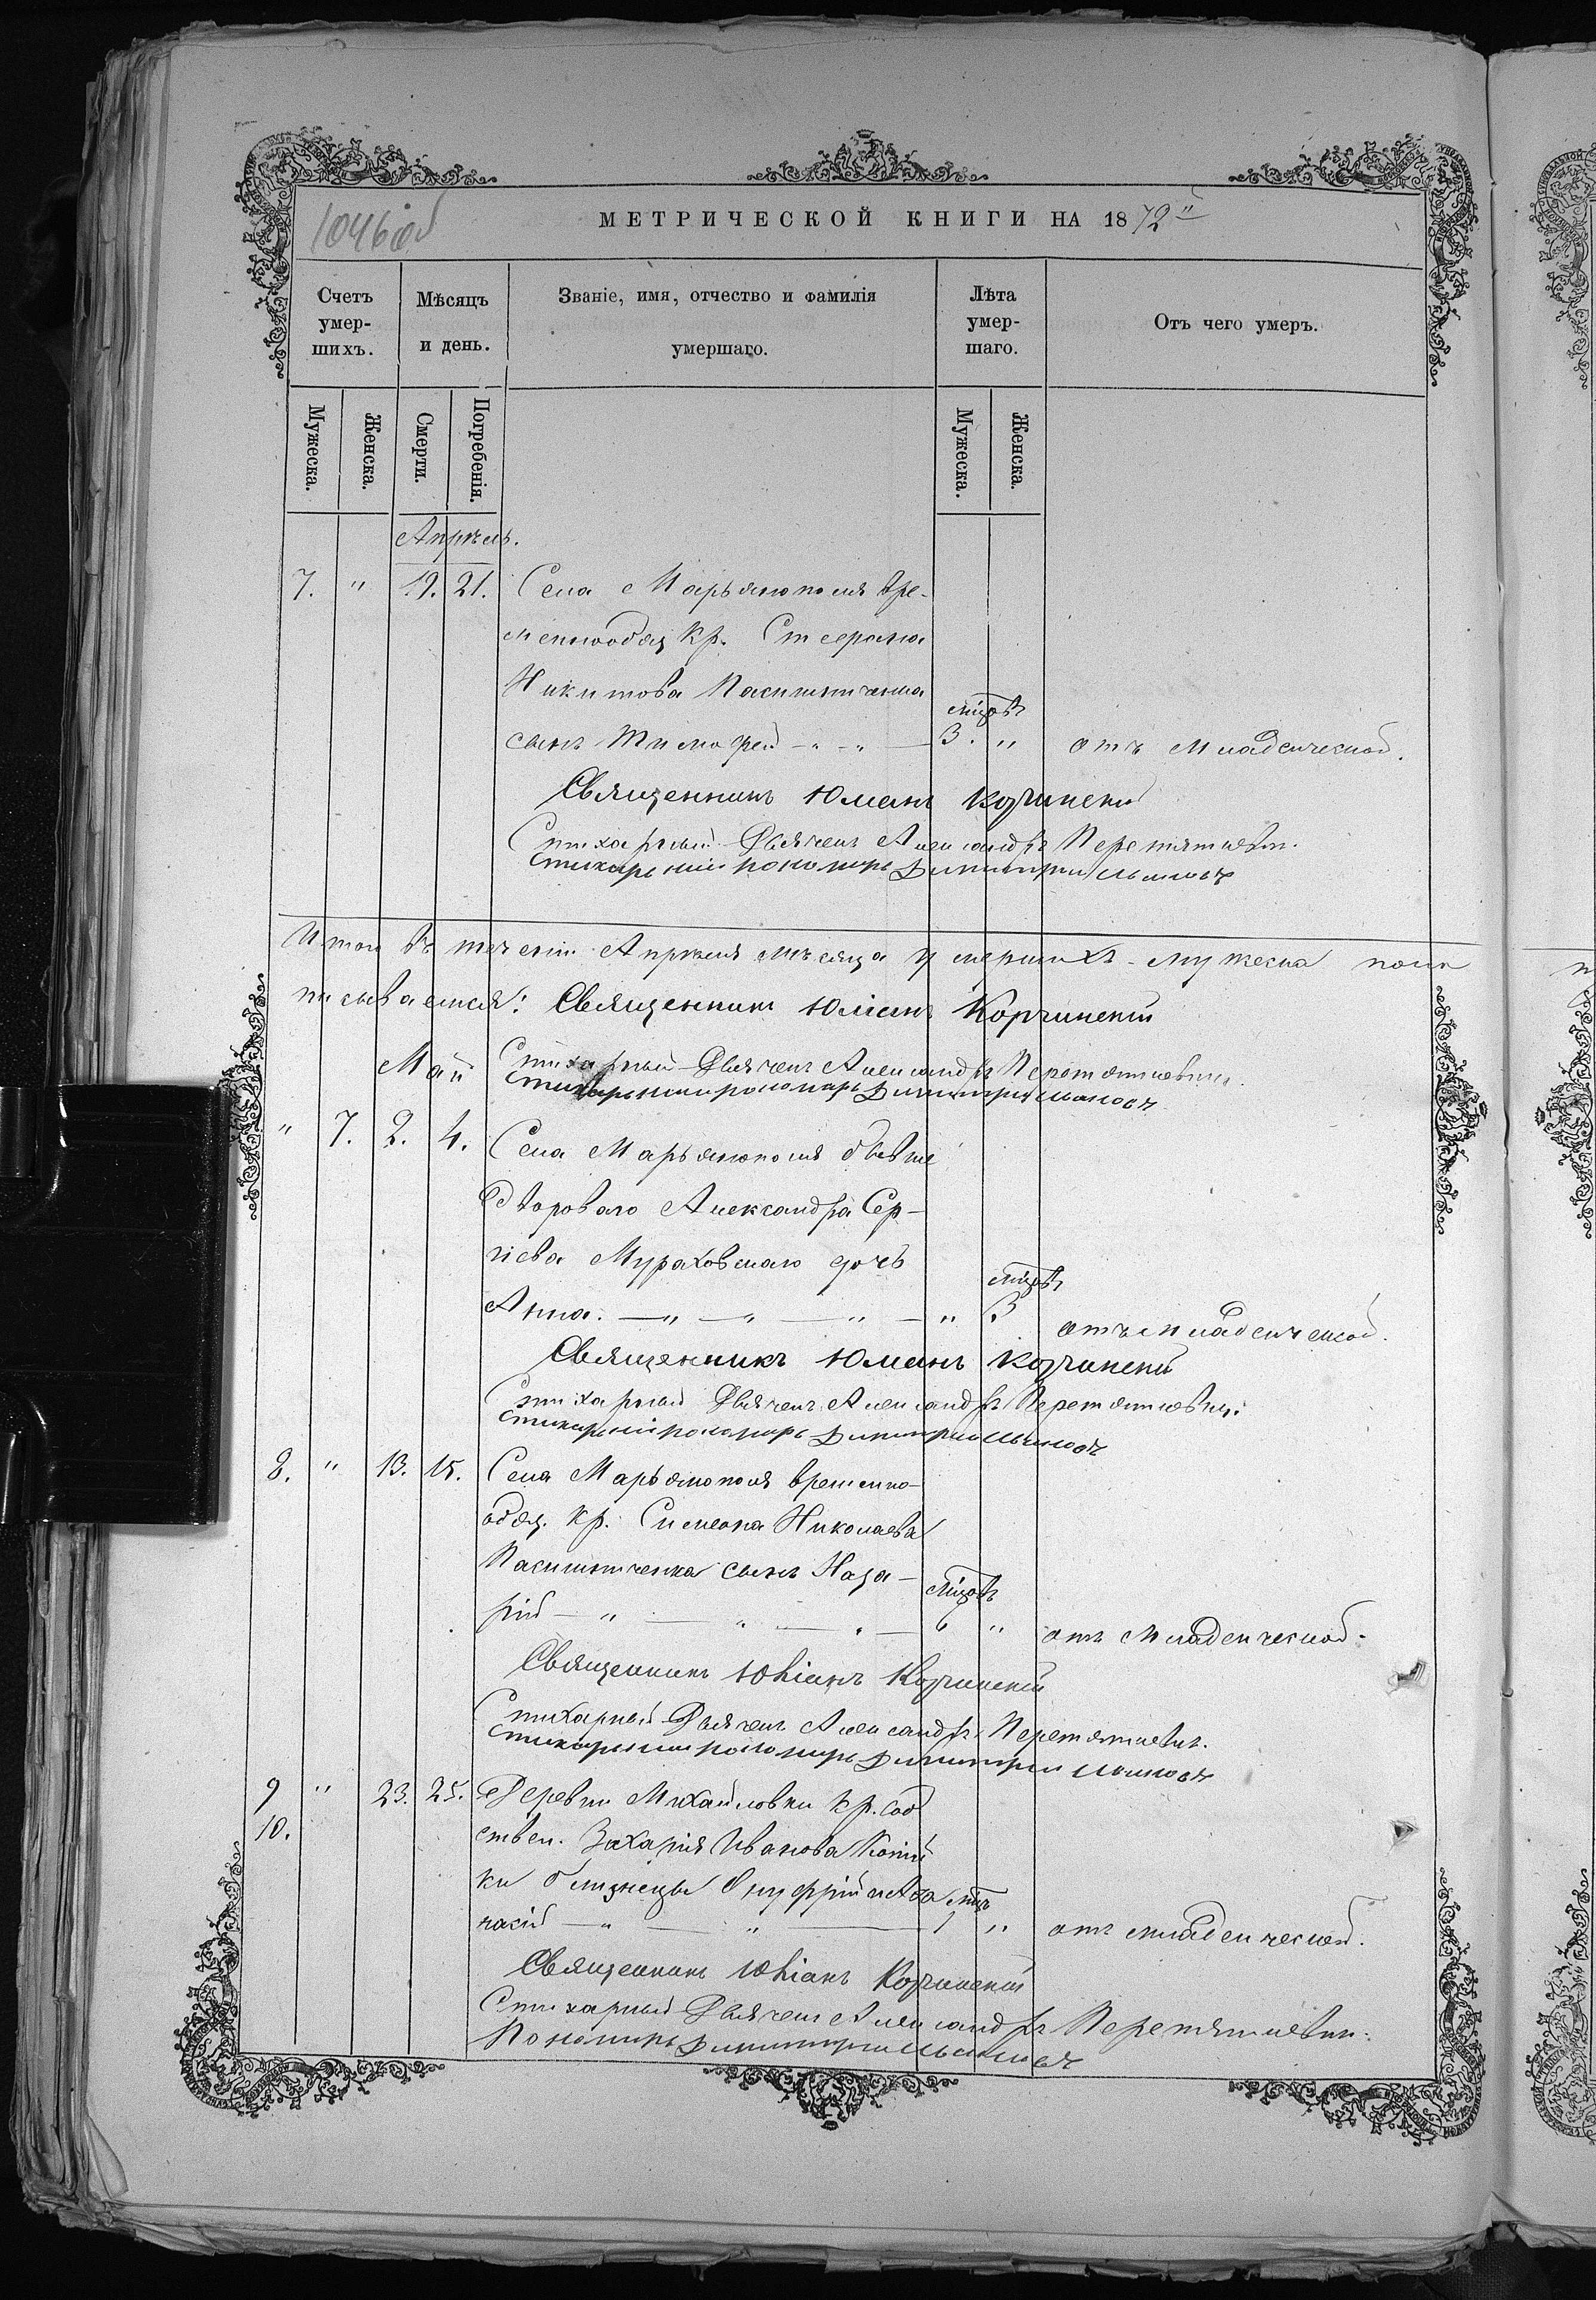 1046 об
МЕТРИЧЕСКОЙ КНИГИ НА 1872
Счетъ умер-шихъ.
Мѣсяцъ и день.
Званіе, имя, отчество и фамилія умершаго.
Лѣта умер-шаго.
Отъ чего умеръ.
Мужеска.
Женска.
Смерти.
Погребенія.
Мужеска.
Женска.
Апрѣль.
7. " 19. 21. Села Марьянополя вре-
меннообяз. кр.
Никитова
сынъ Тимофей - " - " - 3. " отъ младенческой.
Священникъ Юліанъ Корчинскій
Стихарный Дьячекъ Александръ
Стихарный пономарь Димитрій
Итого въ теченіи Апрѣля мѣсяца умершихъ мужеска пола
писываемся: Священникъ Юліанъ Корчинскій
Май
Стихарный Дьячекъ Александръ
Стихарный пономарь Димитрій
" 7. 2. 4. Села Марьянополя бывше
Двороваго Александра Сер-
гіева Мураховскаго дочь
Анна. - " - " - " - " 3 отъ младенческой.
Священникъ Юліанъ Корчинскій
Стихарный Дьячекъ Александръ
Стихарный пономарь Димитрій
8. " 13. 15. Села Марьянополя временно-
обяз. кр. Симеона Николаева
сынъ Наза-
рій - " - " - " - 6 " отъ младенческой.
Священникъ Юліанъ Корчинскій
Стихарный Дьячекъ Александръ
Стихарный пономарь Димитрій
9 " 23. 25. Деревни Михайловки кр. соб
10. ствен. Захарія Иванова
ки близнецы Онуфрій и Афа
насій - " - " - 1 " отъ младенческой.
Священникъ Юліанъ Корчинскій
Стихарный Дьячекъ Александръ
Пономарь Димитрій